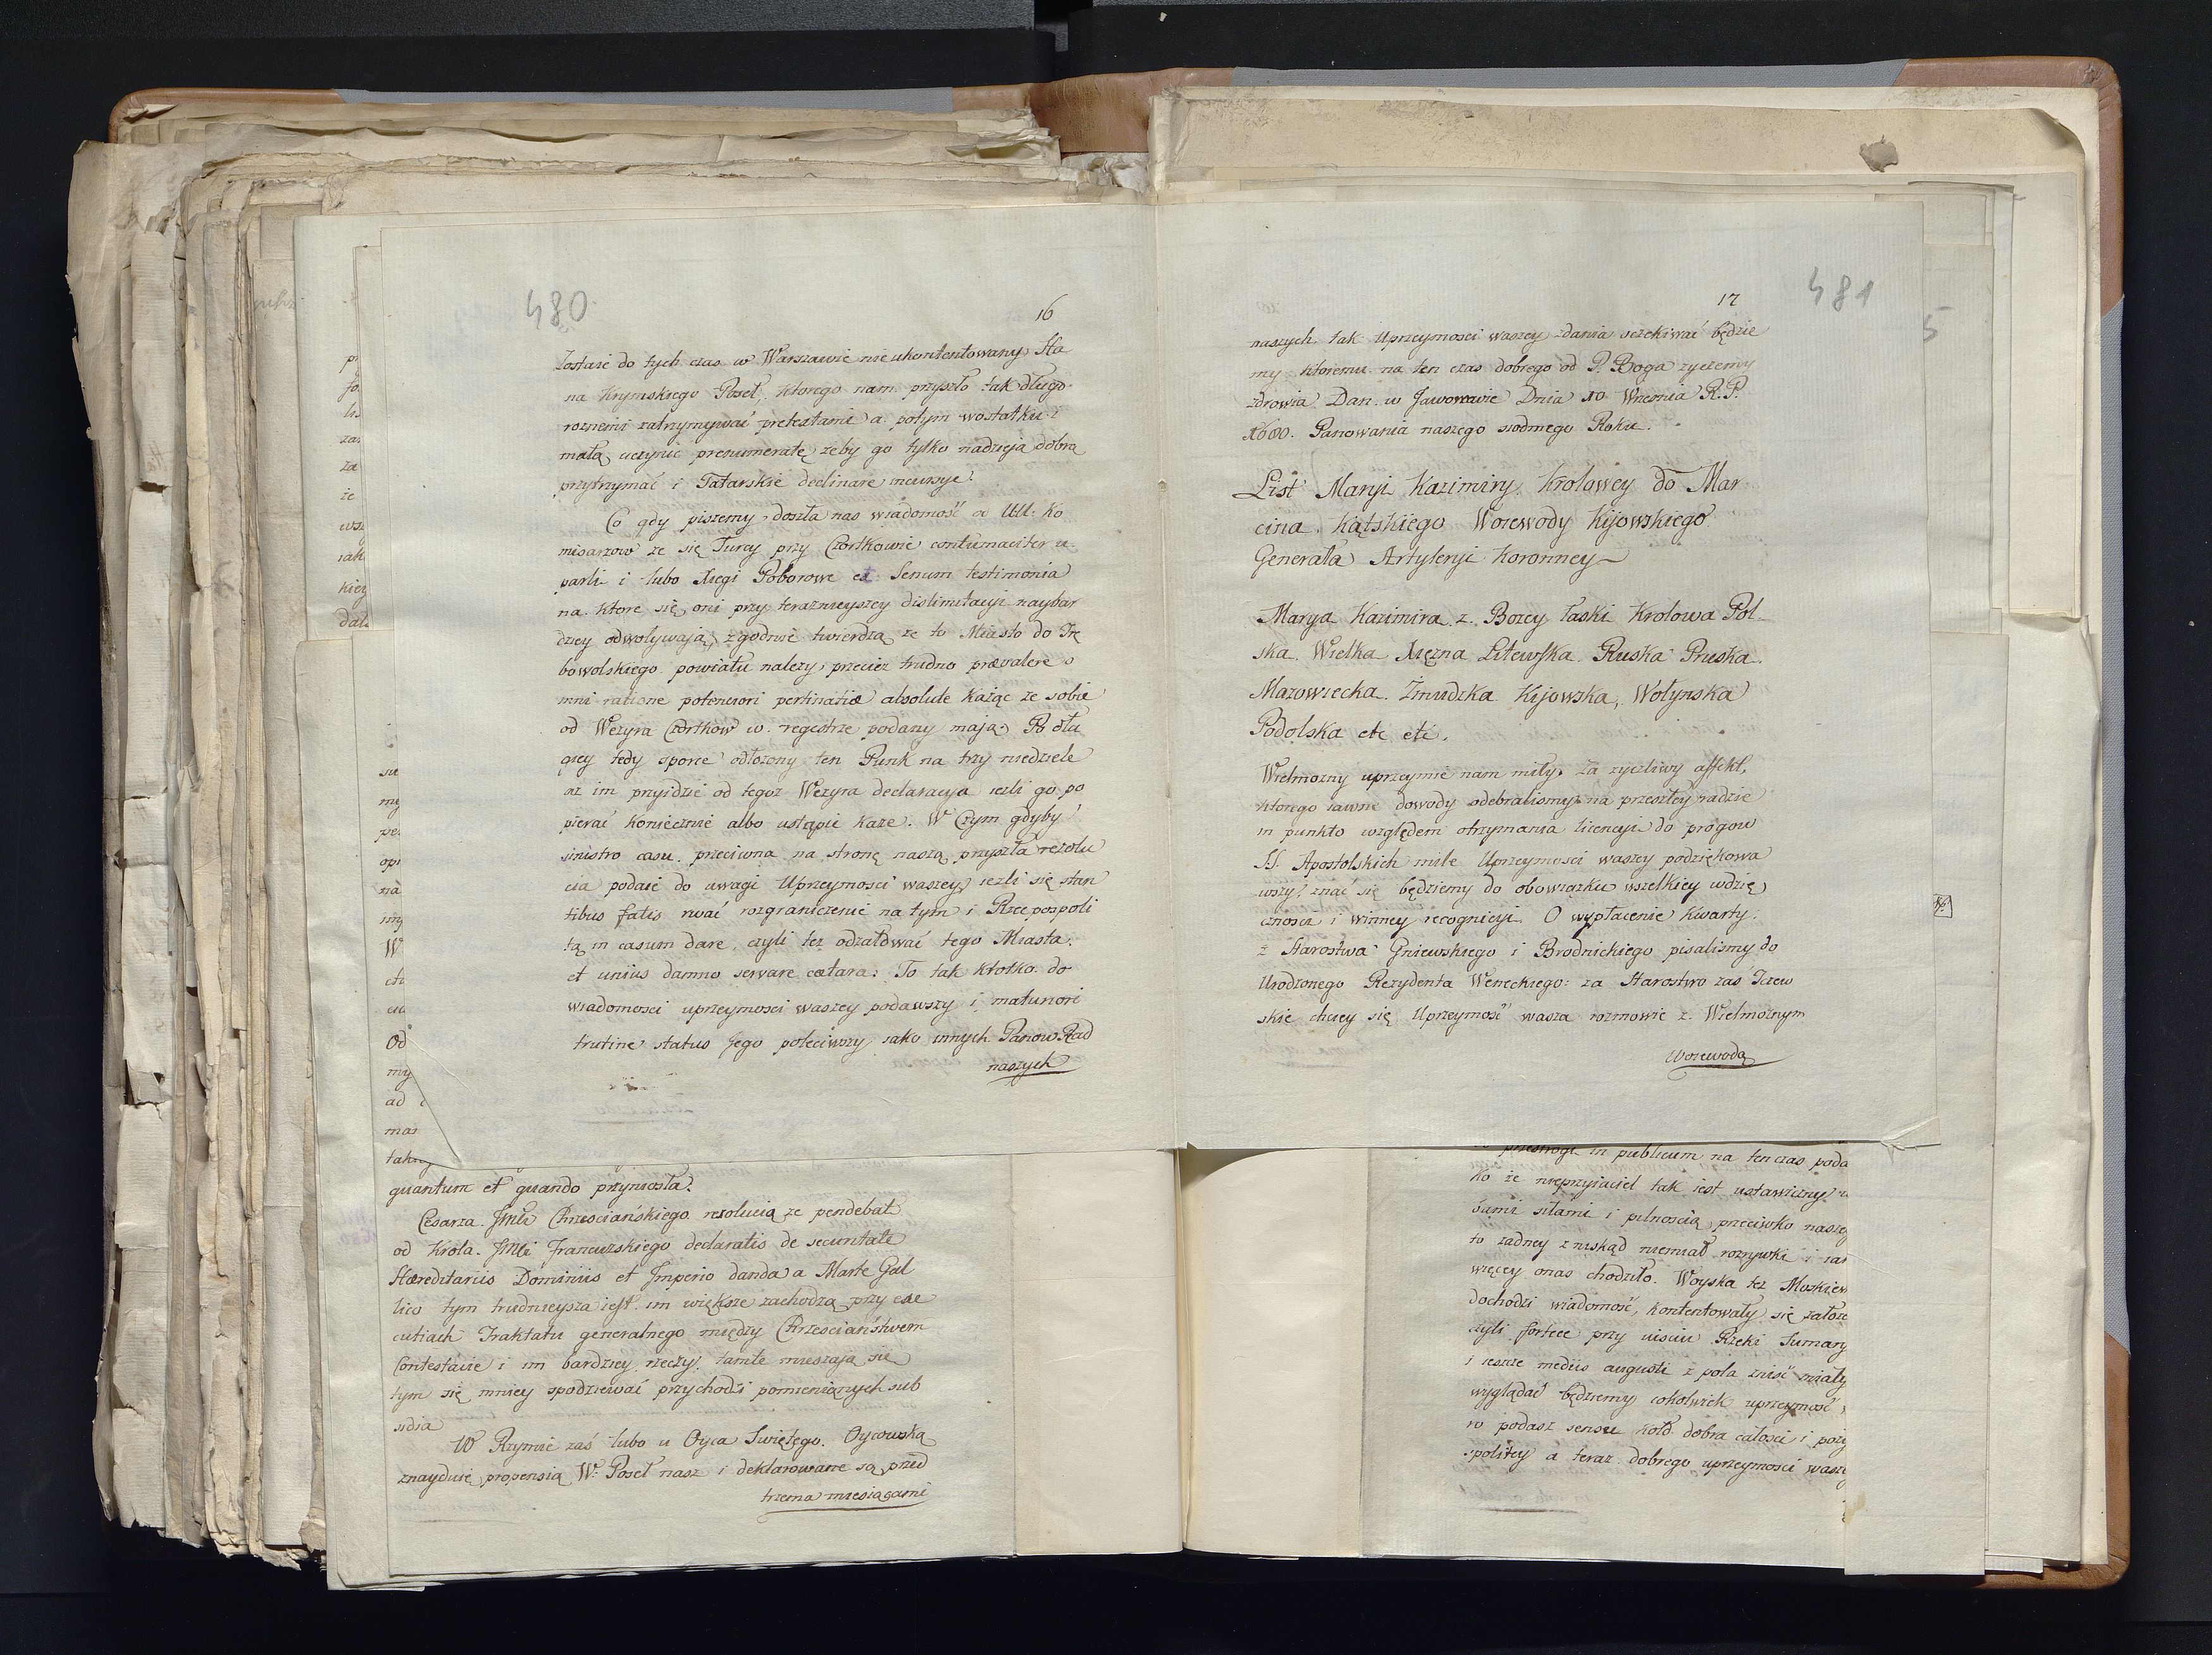 480
16
Zostaie do tych czas w Warszawie nieukontentowany Ha
na Krymskiego Poseł, ktorego nam przyszło tak długo
roznemi zatrzymywać pretextami a potym wostatku i
małą uczynic prenumeratę żeby go tylko nadzieja dobra
przytrzymać i Tatarskie declinare incursye.
Co gdy piszemy doszła nas wiadomość od UU. Ko
misarzow ze się Turcy przy Czortkowie contumaciter u
parli i lubo Xsegi Poborowe et Senum testimonia
na ktore się oni przy teraznieyszey dislimitacyi naybar
dziey odwoływają zgodnie twierdzą ze to Miasto do Trę
bowolskiego powiatu nalezy, przeciez trudno prævalere o
mni ratione potentiori pertinatiæ absolute każąc ze sobie
od Wezyra Czortkow w regestrze podany mają Po dłu
giey tedy sporce odłozony ten Punk na trzy niedziele
az im przyidzie od tegoz Wezyra declaracya iezli go po
pierać koniecznie albo ustąpic kaze. W Czym gdyby
sinistro casu przeciwna na stronę naszą przyszła rezolu
cia podaie do uwagi Uprzeymosci waszey iezli się stan
tibus fatis rwać rozgraniczenie na tym i Rzeczpospoli
tą in casum dare, czyli tez odzałować tego Miasta.
et unius damno servare cætara: To tak krotko do
wiadomosci uprzeymosci waszey podawszy i maturiori
trutinæ status jego poleciwszy iako innych Panow Rad
naszych
quantum et quando przyniosła.
Cesarza JMCi Chrzesciańskiego resolucia ze pendebat
od Krola JMCi Francuzskiego declaratis de securitate
Hæreditariis Dominiis et Imperio danda a Marte Gal
lico tym trudnieysza iest im większe zachodzą przy exe
cutiach Traktatu generalnego między Chrzesciaństwem
Contestacie i im bardziey rzeczy tamte mieszają się
tym się mniey spodziewać przychodzi pomienionych sub
sidia
W Rzymie zaś lubo u Oyca Swiętego Oycowską
znayduie propensią W. Poseł nasz i deklarowane są przed
trzema miesiącami
481
17
naszych tak Uprzeymosci waszey zdania oczekiwać będzie
my ktoremu na ten czas dobrego od P. Boga zyczemy
zdrowia Dan w Jaworowie Dnia 10 Wrzesnia R.P.
1680. Panowania naszego siodmego Roku.
List Maryi Kazimiry Krolowey do Mar
cina Kątskiego Woiewody Kijowskiego
Generała Artyleryi Koronney
Marya Kazimira z Bozey łaski Krolowa Pol
ska Wielka Xięzna Litewska Ruska Pruska
Mazowiecka Żmudzka Kijowska, Wołynska
Podolska etc etc.
Wielmozny uprzeymie nam miły. Za zyczliwy affekt,
ktorego iawne dowody odebralismy na przeszłey radzie
in punkto względem otrzymania licencyi do progow
SS. Apostolskich mile Uprzeymosci waszey podziękowa
wszy, znać się będziemy do obowiązku wszelkiey wdzię
cznosci i winney recognicyi O wypłacenie Kwarty
z Starostwa Gniewskiego i Brodnickiego pisalismy do
Urodzonego Rezydenta Weneckiego: za Starostwo zas Tczew
skie chciey się Uprzeymość wasza rozmowic z Wielmoznym
Woiewodą
przestrogi in publicum na ten czas poda
ko ze nieprzyiaciel tak iest ustawiczny
siłami i pilnoscią przeciwko nasze
to zadney zniskąd niemiał rozrywki i ia
więcey onas chodziło. Woyska tez Moskiew
dochodzi wiadomość, kontentowały się załoze
czyli fortece przy uisciu Rzeki Sumary
i ieszcze mediis augusti z pola zniść miały
wyglądać będziemy cokolwiek uprzeymość
podasz sensu dobra całosci i pozy
spolitey a teraz dobrego uprzeymosci wasze